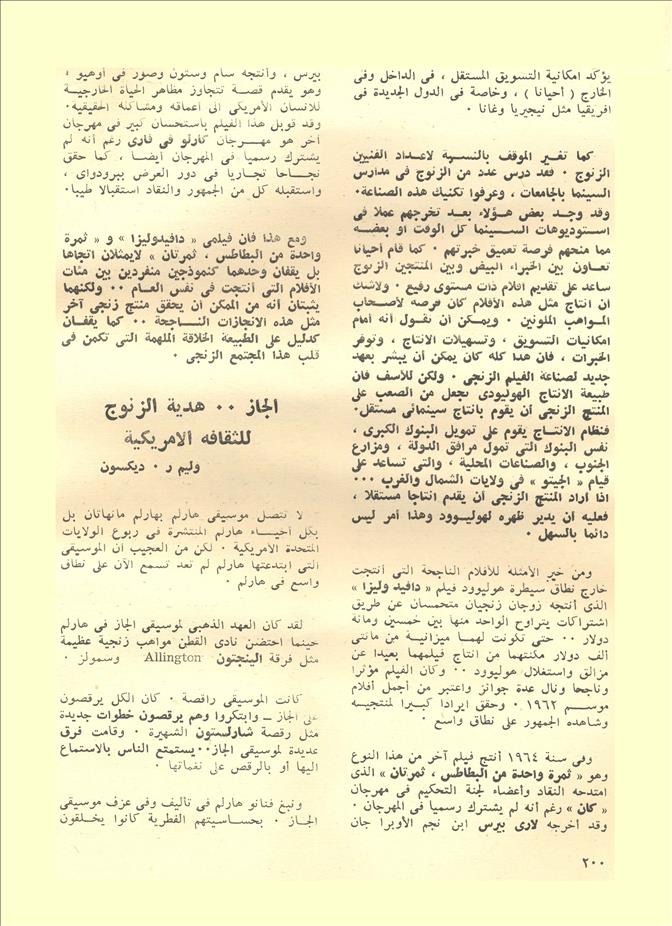 يؤكد امكانية التسويق المستقل ، فى الداخل وفى
الخارج ( أحيانا ) ، وخاصة فى الدول الجديدة فى
افريقيا مثل نيجيريا وغانا ٠
كما تغير الموقف بالنسبة لاعداد الفنيين
الزنوج ٠ فقد درس عدد من الزنوج فى مدارس
السينما بالجامعات ، وعرفوا تكنيك هذه الصناعة٠
وقد وجد بعض هؤلاء بعد تخرجهم عملا فى
استوديوهات السينما كل الوقت أو بعضه
مما منحهم فرصة تعميق خبرتهم ٠ كما قام أحيانا
تعاون بين الخبراء البيض وبين المنتجين الزنوج
ساعد على تقديم أفلام ذات مستوى رفيع ٠ ولاشك
ان انتاج مثل هذه الأفلام كان فرصة لأصحاب
المواهب الملونين ٠ ويمكن أن نقول أنه أمام
امكانيات التسويق ، وتسهيلات الانتاج ، وتوفر
الخبرات ، فان هذا كله كان يمكن أن يبشر بعهد
جديد لصناعة الفيلم الزنجى ٠ ولكن للأسف فان
طبيعة الانتاج الهوليودى تجعل من الصعب على
المنتج الزنجى أن يقوم بانتاج سينمائى مستقل٠
فنظام الانتاج يقوم على تمويل البنوك الكبرى ،
نفس البنوك التى تمول مرافق الدولة ، ومزارع
الجنوب ، والصناعات المحلية ، والتى تساعد على
قيام « الجيتو » فى ولايات الشمال والغرب ٠٠٠
اذا أراد المنتج الزنجى أن يقدم انتاجا مستقلا ،
فعليه أن يدير ظهره لهوليوود وهذا أمر ليس
دائما بالسهل ٠
ومن خير الأمثلة للأفلام الناجحة التى أنتجت
خارج نطاق سيطرة هوليوود فيلم « دافيد وليزا »
الذى أنتجه زوجان زنجيان متحمسان عن طريق
اشتراكات يتراوح الواحد منها بين خمسين ومائة
دولار ٠٠ حتى تكونت لهما ميزانية من مائتى
ألف دولار مكنتهما من انتاج فيلمهما بعيدا عن
مزالق واستغلال هوليوود ٠٠ وكان الفيلم مؤثرا
وناجحا ونال عدة جوائز واعتبر من أجمل أفلام
موسم ١٩٦٢ ٠ وحقق ايرادا كبيرا لمنتجيه
وشاهده الجمهور على نطاق واسع ٠
وفى سنة ١٩٦٤ أنتج فيلم آخر من هذا النوع
وهو « ثمرة واحدة من البطاطس ، ثمرتان » الذى
امتدحه النقاد وأعضاء لجنة التحكيم فى مهرجان
« كان » رغم أنه لم يشترك رسميا فى المهرجان ٠
وقد أخرجه لارى بيرس ابن نجم الأوبرا جان
بيرس ، وأنتجه سام وستون وصور فى أوهيو ،
وهو يقدم قصة تتجاوز مظاهر الحياة الخارجية
للانسان الأمريكى الى أعماقه ومشاكله الحقيقية٠
وقد قوبل هذا الفيلم باستحسان كبير فى مهرجان
آخر هو مهرجان كارلو فى فارى رغم أنه لم
يشترك رسميا فى المهرجان أيضا ، كما حقق
نجاحا تجاريا فى دور العرض ببرودواى ،
واستقبله كل من الجمهور والنقاد استقبالا طيبا٠
ومع هذا فان فيلمى « دافيدوليزا » و « ثمرة
واحدة من البطاطس ، ثمرتان » لايمثلان اتجاها
بل يقفان وحدهما كنموذجين منفردين بين مئات
الأفلام التى أنتجت فى نفس العام ٠٠ ولكنهما
يثبتان أنه من الممكن أن يحقق منتج زنجى آخر
مثل هذه الانجازات الناجحة ٠٠ كما يقفان
كدليل على الطبيعة الخلاقة الملهمة التى تكمن فى
قلب هذا المجتمع الزنجى ٠
الجاز ٠٠ هدية الزنوج
للثقافه الامريكية
وليم ر ٠ ديكسون
لا تتصل موسيقى هارلم بهارلم مانهاتان بل
بكل أحياء هارلم المنتشرة فى ربوع الولايات
المتحدة الأمريكية ٠ لكن من العجيب أن الموسيقى
التى ابتدعتها هارلم لم تعد تسمع الآن على نطاق
واسع فى هارلم ٠
لقد كان العهد الذهبى لموسيقى الجاز فى هارلم
حينما احتضن نادى القطن مواهب زنجية عظيمة
مثل فرقة الينجتون Allington وسمولز ٠
كانت الموسيقى راقصة ٠ كان الكل يرقصون
على الجاز – وابتكروا وهم يرقصون خطوات جديدة
مثل رقصة شارلستون الشهيرة ٠ وقامت فرق
عديدة لموسيقى الجاز٠٠يستمتع الناس بالاستماع
اليها أو بالرقص على نغماتها ٠
ونبغ فنانو هارلم فى تأليف وفى عزف موسيقى
الجاز ٠ بحساسيتهم الفطرية كانوا يخلقون
٢٠٠